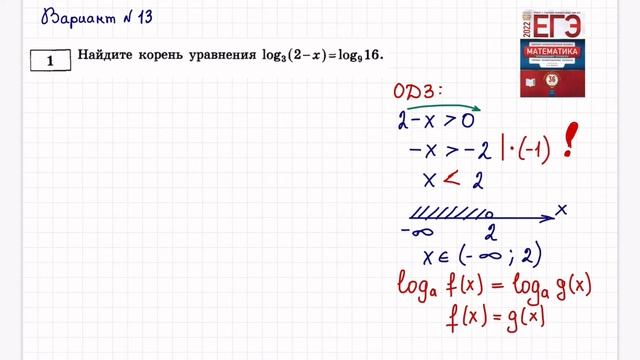 Вариант № 13
1 Найдите корень уравнения log₃(2−x)=log₉16.
2022
ЕГЭ
МАТЕМАТИКА
36
ОДЗ:
2−x>0
−x>−2 |·(−1) !
x < 2
x
−∞ 2
x∈(−∞; 2)
logₐ f(x) = logₐ g(x)
f(x)=g(x)